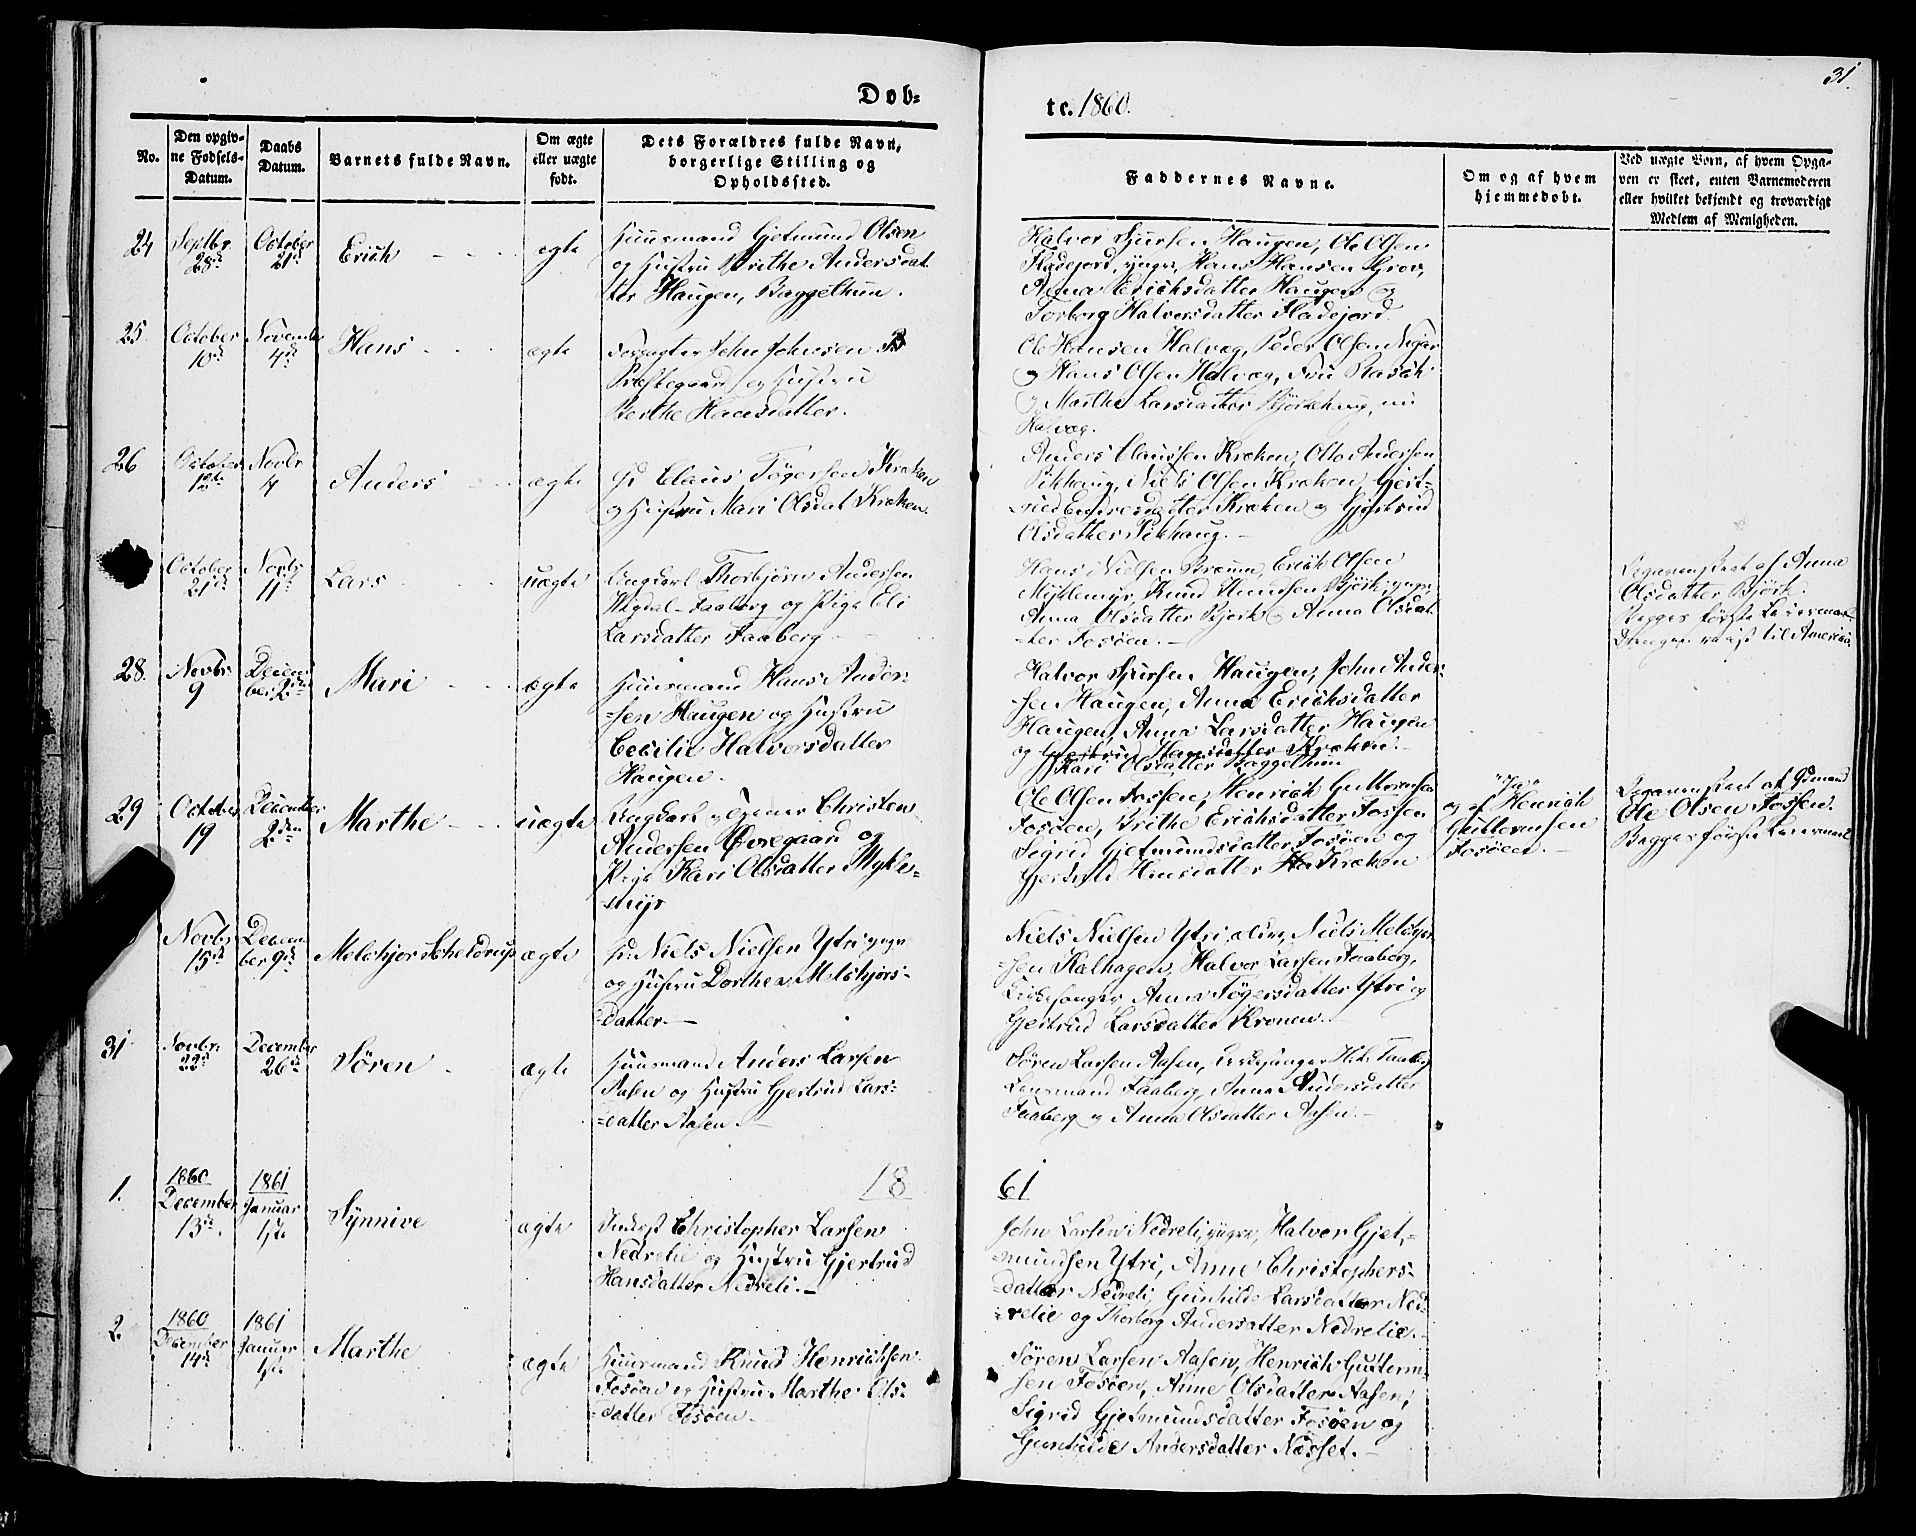 31.
Døb=
te. 1860.
No.
Den opgiv-
ne Fødsels-
Datum.
Daabs
Datum.
Barnets fulde Navn.
Om ægte
eller uægte
født.
Dets Forældres fulde Navn,
borgerlige Stilling og
Opholdssted.
Faddernes Navne.
Om og af hvem
hjemmedøbt.
Ved uægte Børn, af hvem Opga-
ven er skeet, enten Barnemoderen
eller hvilket bekjendt og troværdigt
Medlem af Menigheden.
24
Septbr.
28de
October
21de
Erich
ægte
Huusmand Gjetmund Olsen
og Hustru Brithe Andersdat
ter Haugen, Baggethun.
Halvor Sjursen Haugen, Ole Olsen
Fladejord, yngre, Hans Hansen Grov,
Anna Erichsdatter Haugen og
Torborg Halvorsdatter Fladejord.
25
October
10de
November
4de
Hans
ægte
Forpagter John Johnsen
Præstegaard og Hustru
Berthe Hansdatter.
Ole Hansen Halvæg, Peder Olsen
og Hans Olsen Halvæg, Fru
og Marthe Larsdatter Bjørkehaug, nu
Halvæg.
26
October
12te
Novbr
4
Anders
ægte
Gr Claus Tøgersen Kroken
og Hustru Mari Olsdat Kroken.
Anders Claussen Kroken, Otto Andersen
Pikhaug, Niels Olsen Kroken, Gjert-
rud Endresdatter Kroken og Gjertrud
Olsdatter Pikhaug.
October
21de
Novbr
11te
Lars
uægte
Ungkarl Thorbjørn Andersen
Faaberg og Pige Eli
Larsdatter Faaberg
Hans Nielsen Bræum, Erich Olsen
Myklemyr, Knud Knudsen Bjørk, yngr,
Anna Olsdatter Bjørk og Anna Olsdat
ter Fosøen.
af Anna
Olsdatter Bjørk.
Begges første Leiermaal
reist til America
28.
Novbr
9
Decem
ber 2den
Mari
ægte
Huusmand Hans Ander-
=sen Haugen og Hustru
Cecilie Halvorsdatter
Haugen.
Halvor Sjursen Haugen, John Ander-
sen Haugen, Anna Erichsdatter
Haugen, Anna Larsdatter Haugen
og Gjertrud Hansdatter Kroken.
Kari Olsdatter Baggethun
29
October
19
December
2den
Marthe
uægte
Ungkarl Christen
Andersen Øvregaard og
Pige Kari Olsdatter Mykle-
=myr
Ole Olsen Fossen, Henrich Guttormsen
Fosøen, Brithe Erichsdatter Fossen
Sigrid Gjetmundsdatter Fosøen og
Gjertrud Hansdatter Kroken
"Ja"
og af Henrich
Guttormsen
Fosøen.
af Gdmand
Ole Olsen Fossen.
Begges første Leiermaal
Novbr
15de
Decem
ber 9de
Melchjor Scheldrup
ægte
Gr Niels Nielsen Ytri yngr
og Hustru Dorthea Melchjors-
=datter.
Niels Nielsen Ytri, ældre, Niels Melchjor
=sen Kalhagen, Halvor Larsen Faaberg,
Kirkesanger, Anna Tøgersdatter Ytri og
Gjertrud Larsdatter Kronen.
31
Novbr.
22de
December
26de
Søren
ægte
Huusmand Anders Larsen
Aasen og Hustru Gjertrud Lars-
=datter Aasen.
Søren Larsen Aasen, Kirkesanger H. L. Faaberg
Lensmand Faaberg, Anna Andersdatter
Faaberg og Anna Olsdatter Aasen.
18
61
1.
1860
December
13de.
1861
Januar
1ste.
Synnive
ægte
Inderst Christopher Larsen
Nedrelie og Hustru Gjertrud
Hansdatter Nedreli.
John Larsen Nedreli, yngre, Halvor Gjet,-
=mundsen Ytri, Anne Christophers-
datter Nedreli, Gunhilde Larsdatter Ned-
=relie og Thorborg Andersdatter Nedrelie.
2.
1860
December
14de
1861
Januar
1ste.
Marthe
ægte
Huusmand Knud Henrichsen
Fosøen og Hustru Marthe Ols-
=datter Fosøen.
Søren Larsen Aasen, Henrich Guttorm-
sen Fosøen, Anne Olsdatter Aasen,
Sigrid Gjetmundsdatter Fosøen og
Gunhilde Andersdatter Næsset.